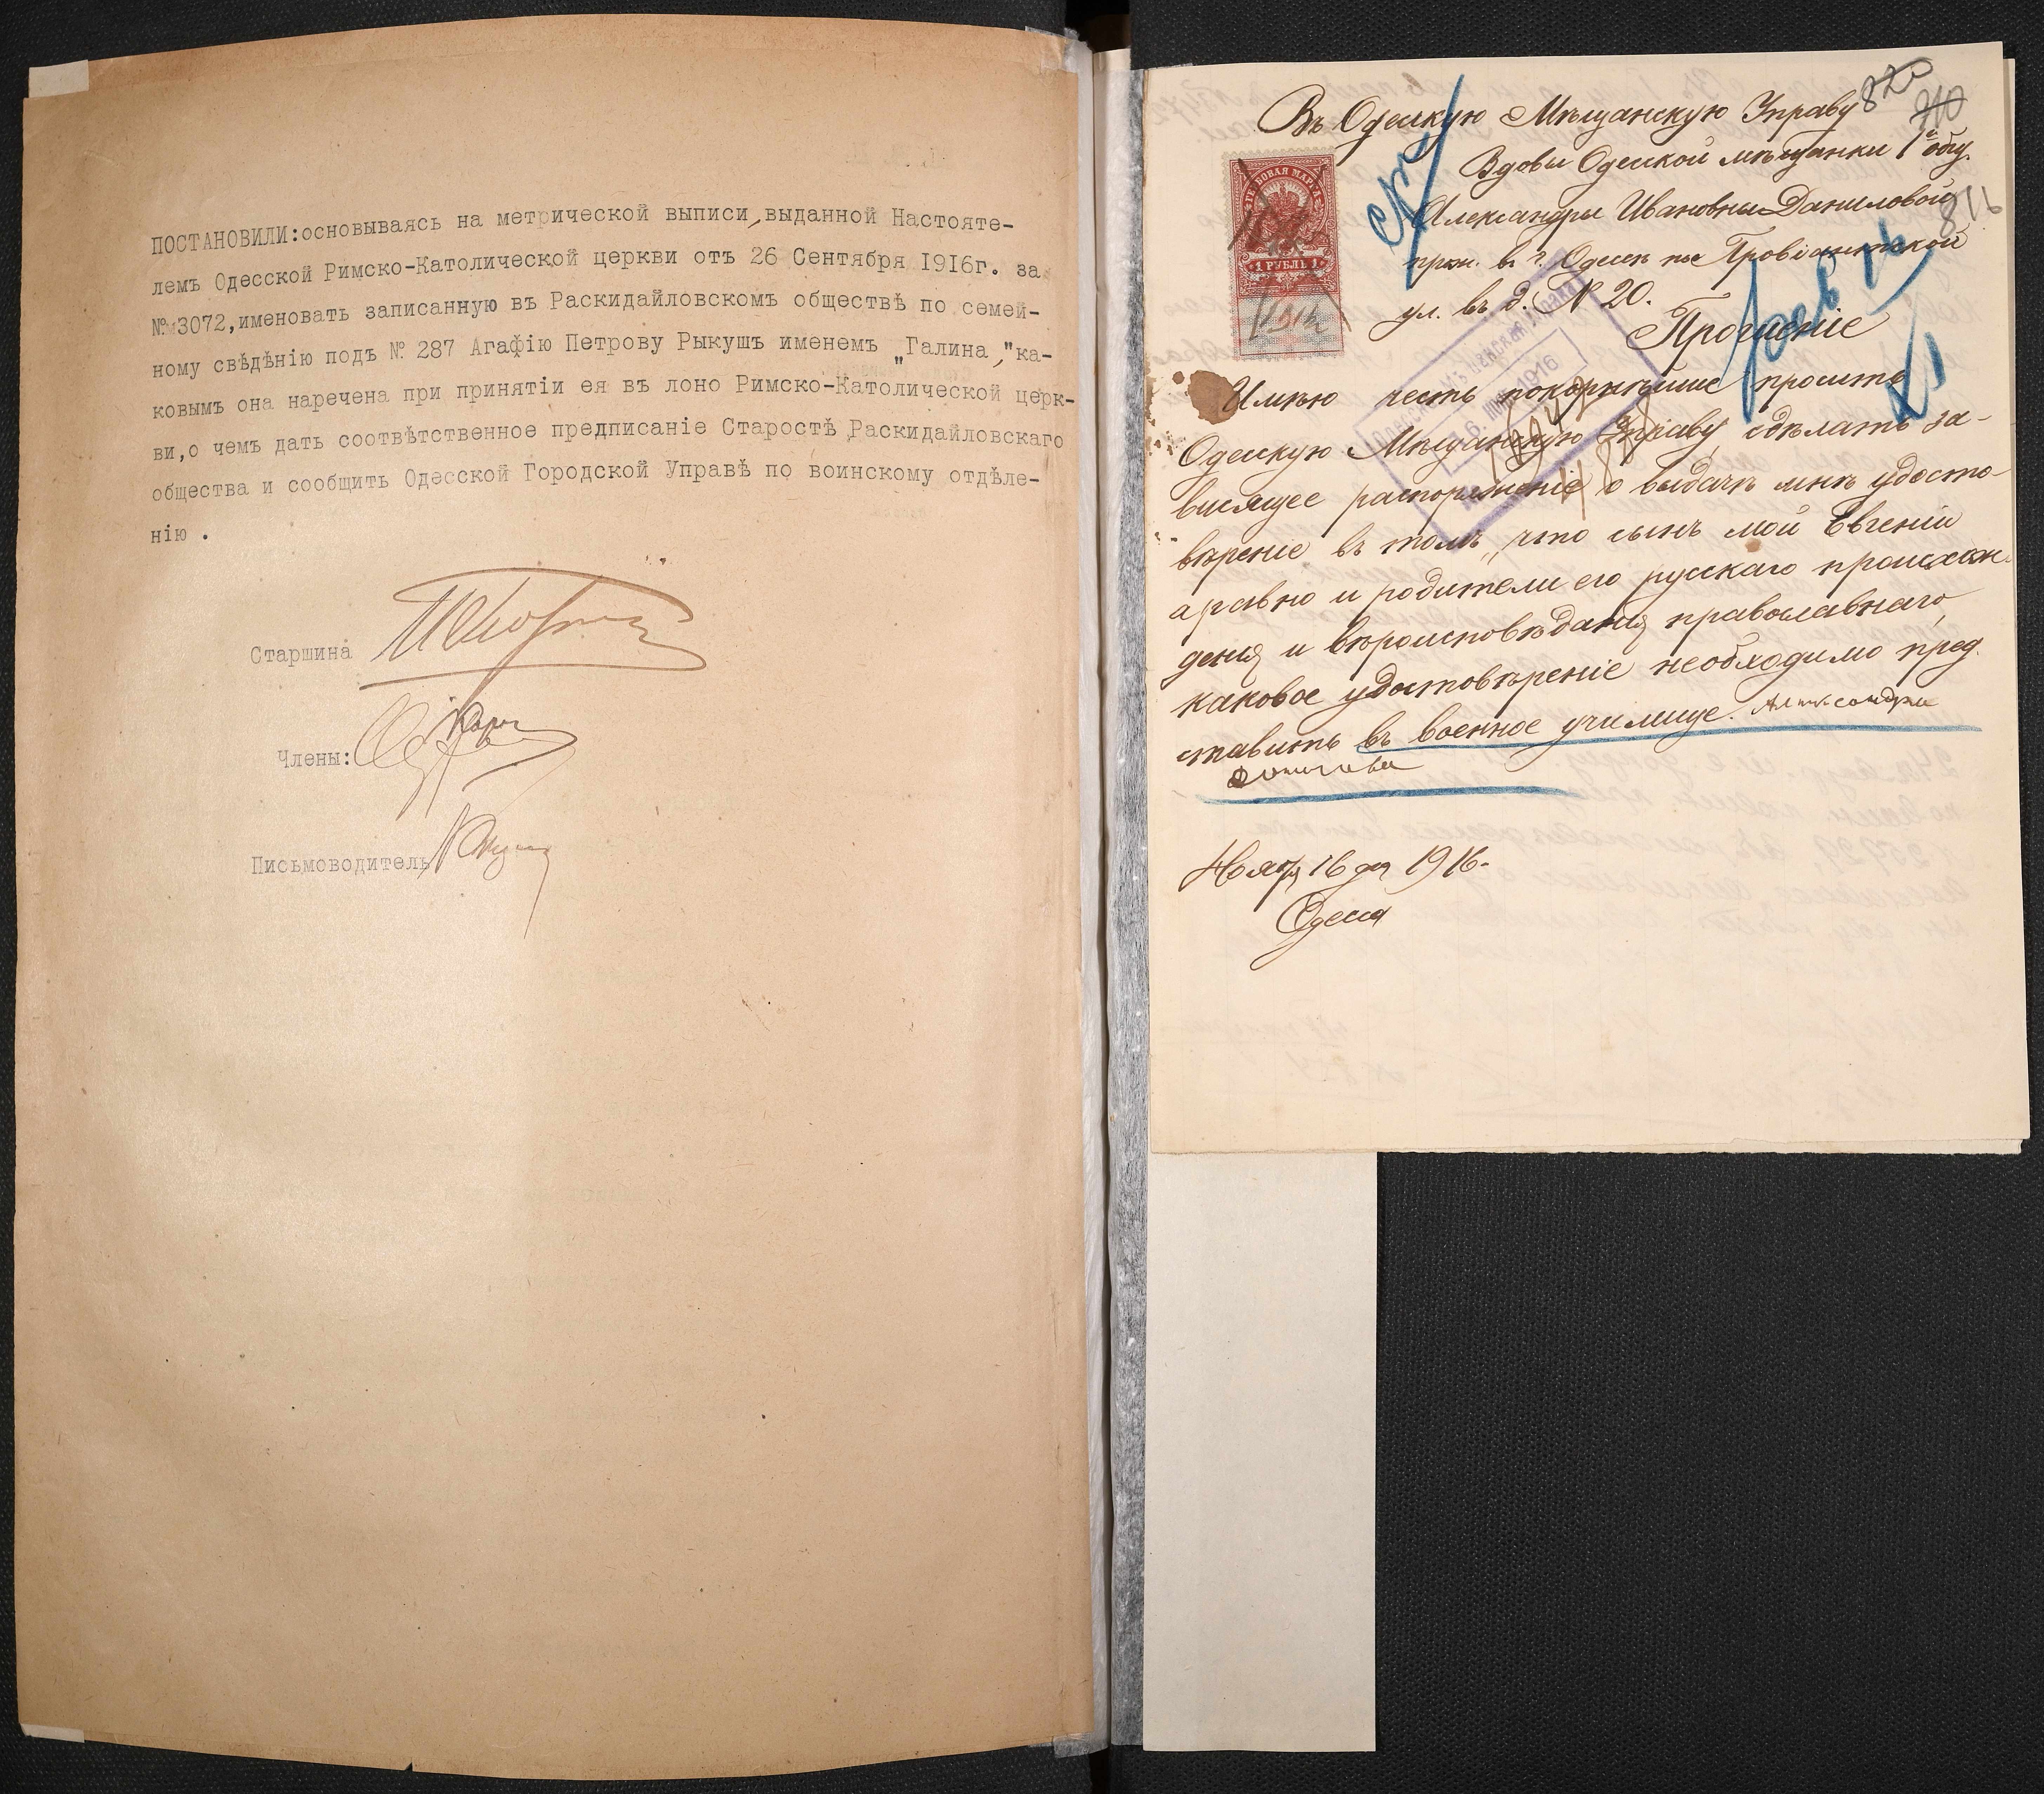 ПОСТАНОВИЛИ:основываясь на метрической выписи,выданной Настояте-
лемъ Одесской Римско-Католической церкви отъ 26 Сентября 1916г. за
№ 3072,именовать записанную въ Раскидайловскомъ обществѣ по семей-
ному свѣдѣнію подъ № 287 Агафію Петрову Рыкушъ именемъ „Галина,"ка-
ковымъ она наречена при принятіи ея въ лоно Римско-Католической церк-
ви,о чемъ дать соотвѣтственное предписаніе Старостѣ Раскидайловскаго
общества и сообщить Одесской Городской Управѣ по воинскому отдѣле-
нію .
Старшина
Члены:
Письмоводитель
820
310
816
Въ Одесскую Мѣщанскую Управу
Вдовы Одесской мѣщанки 1го общ.
Александры Ивановны Даниловой
прож. в г. Одессѣ по Провіантской
ул. въ д. № 20.
1 РУБЛЬ 1
1916
Прошеніе
Имѣю честь покорнѣйше просить
Одесскую Мѣщанскую Управу, сдѣлать за-
висящее распоряженіе о выдачѣ мнѣ удосто-
вѣреніе въ томъ, что сынъ мой Евгеній
а равно и родители его русскаго происхож-
денія и вѣроисповѣданія православнаго,
каковое удостовѣреніе необходимо пред-
ставить въ военное училище. Александра
Данилова
Ноября 16 дня 1916.
Одесса